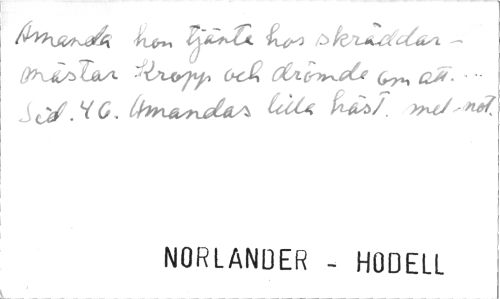 Amanda hon tjänte hos skräddar-
mästar Kropp och drömde om att...
Sid. 46. Amandas lilla häst. mel-not.
NORLANDER - HODELL